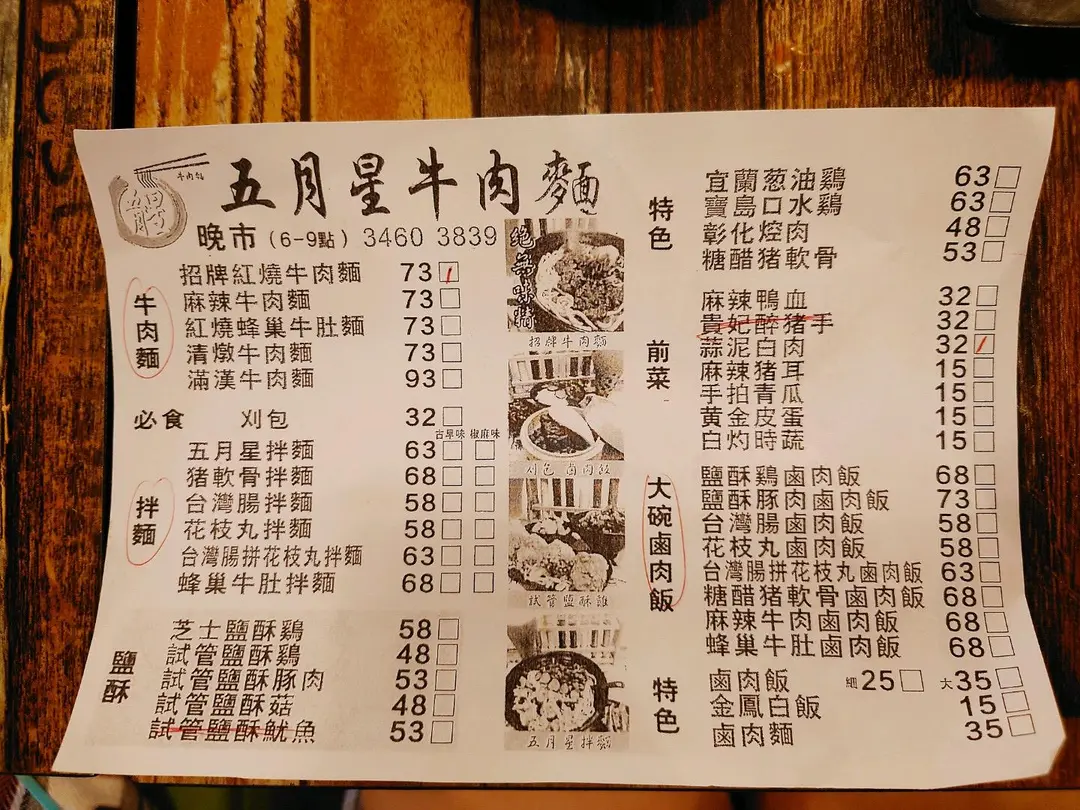 牛肉麵
五月星牛肉麵
晚市（6-9點）3460 3839
牛肉麵
招牌紅燒牛肉麵 73
麻辣牛肉麵 73
紅燒蜂巢牛肚麵 73
清燉牛肉麵 73
滿漢牛肉麵 93
必食 刈包 32
古早味 椒麻味
拌麵
五月星拌麵 63
豬軟骨拌麵 68
台灣腸拌麵 58
花枝丸拌麵 58
台灣腸拼花枝丸拌麵 63
蜂巢牛肚拌麵 68
鹽酥
芝士鹽酥鷄 58
試管鹽酥鷄 48
試管鹽酥豚肉 53
試管鹽酥菇 48
試管鹽酥魷魚 53
绝無味精
招牌牛肉麵
刈包 鹵肉飯
試管鹽酥雞
五月星拌麵
特色
宜蘭葱油鷄 63
寶島口水鷄 63
彰化焢肉 48
糖醋豬軟骨 53
前菜
麻辣鴨血 32
貴妃醉豬手 32
蒜泥白肉 32
麻辣豬耳 15
手拍青瓜 15
黄金皮蛋 15
白灼時蔬 15
大碗鹵肉飯
鹽酥鷄鹵肉飯 68
鹽酥豚肉鹵肉飯 73
台灣腸鹵肉飯 58
花枝丸鹵肉飯 58
台灣腸拼花枝丸鹵肉飯 63
糖醋豬軟骨鹵肉飯 68
麻辣牛肉鹵肉飯 68
蜂巢牛肚鹵肉飯 68
特色
鹵肉飯 細25 大35
金鳳白飯 15
鹵肉麵 35